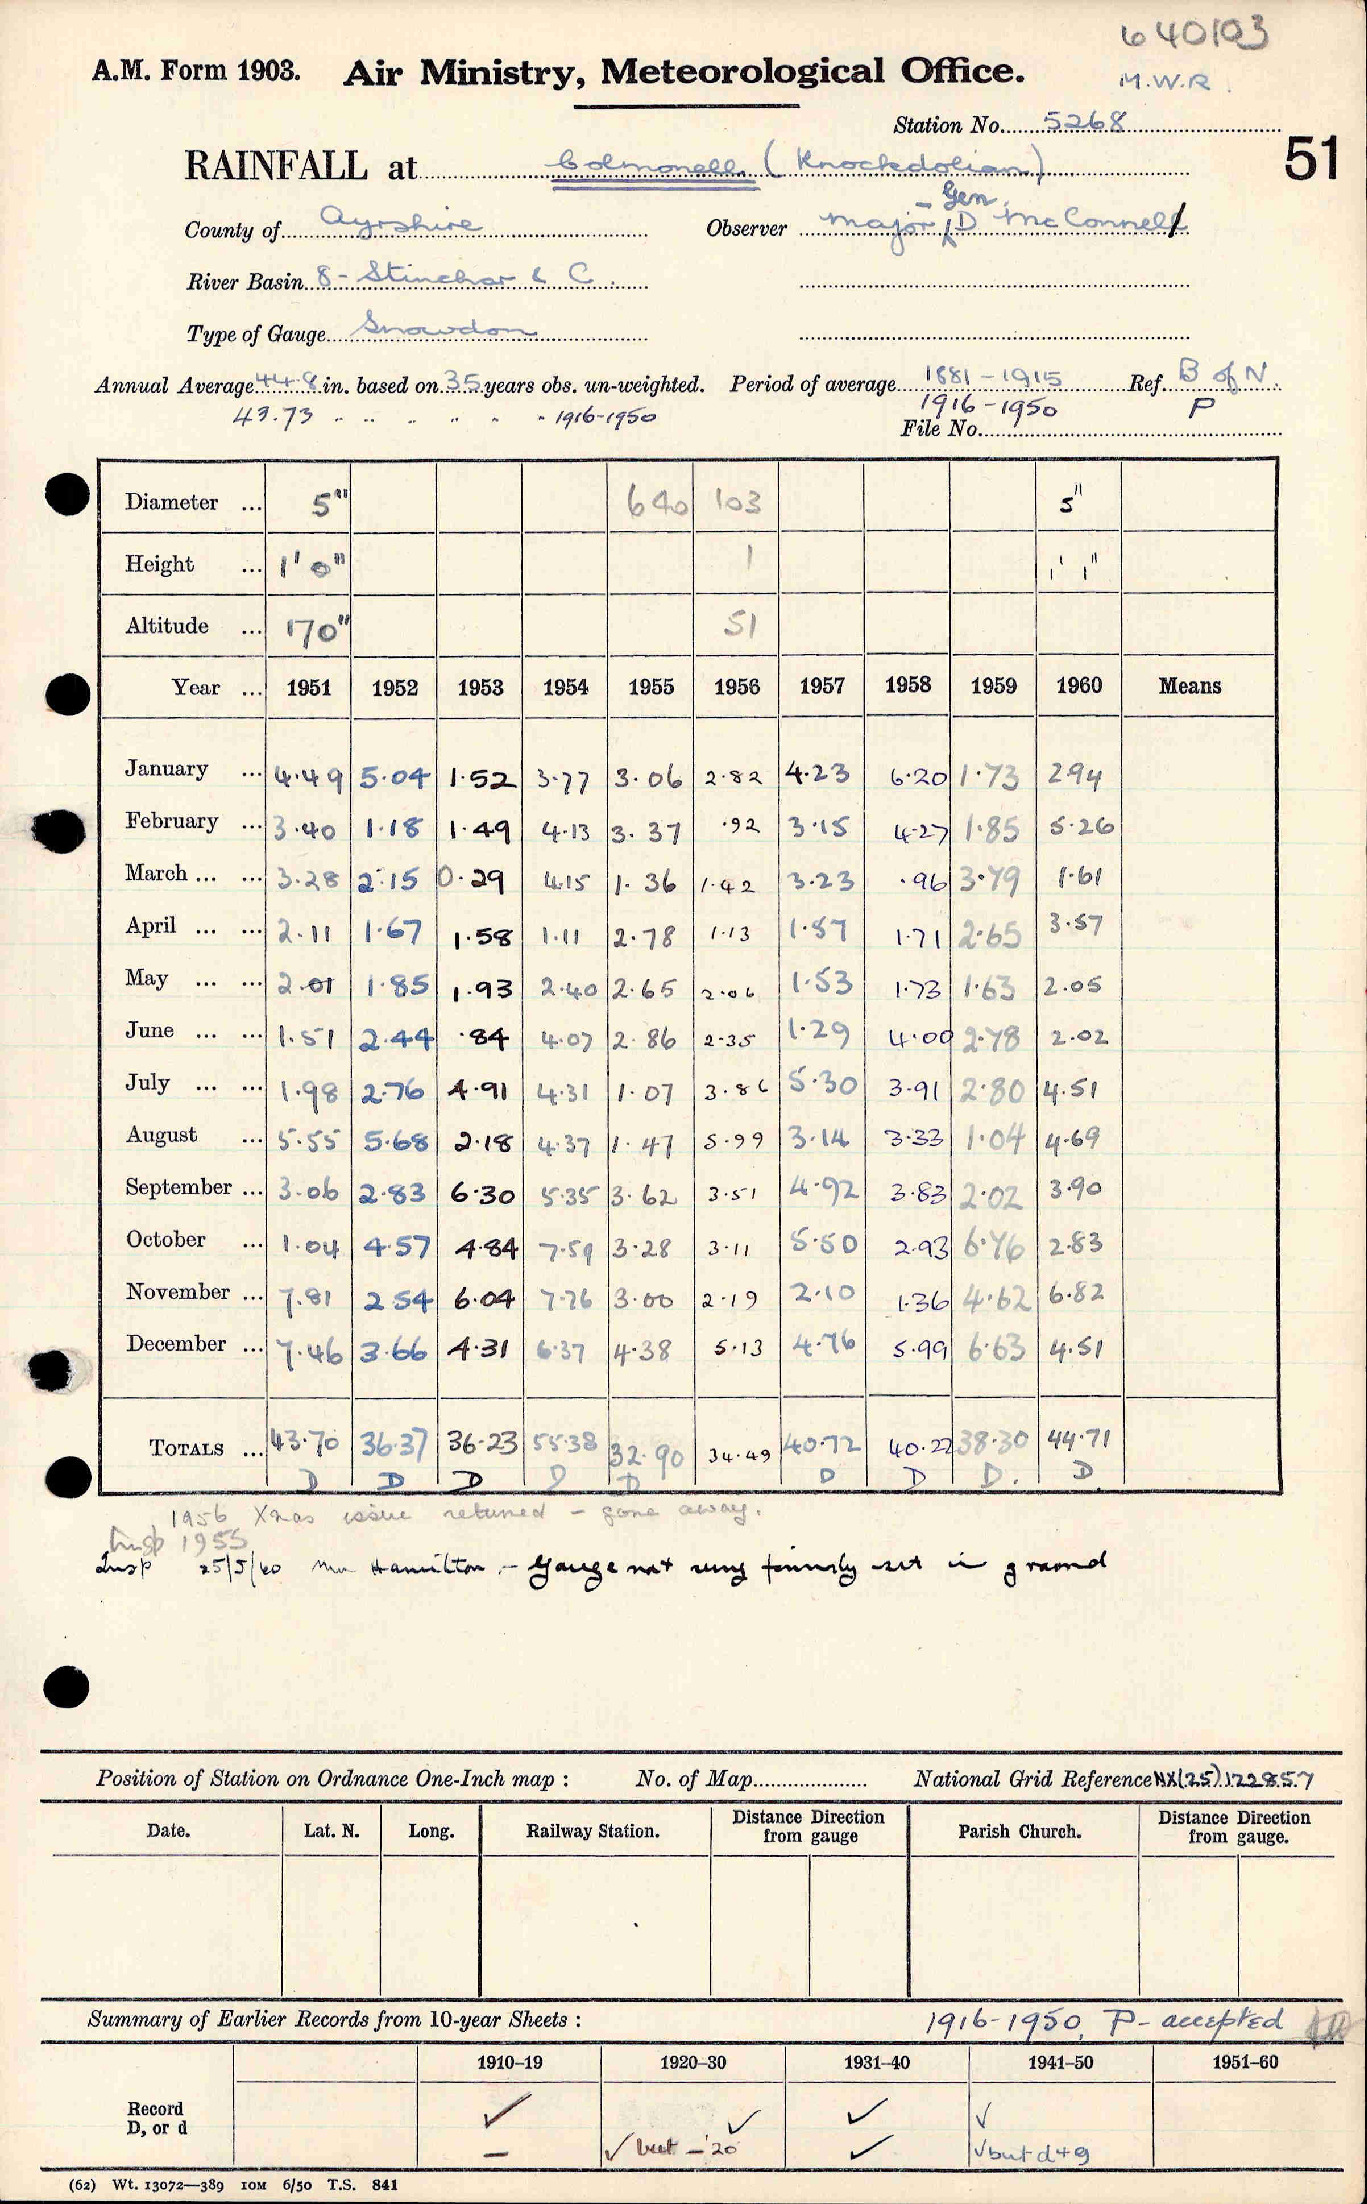 640103
A.M. Form 1903. Air Ministry, Meteorological Office.
M.W.R.
Station No. 5268
51
RAINFALL at Colmonell (Knockdolian)
County of Ayrshire Observer Major-Gen. D McConnell
River Basin 8- Stinchar & C.
Type of Gauge Snowdon
Annual Average 44.8 in. based on 35 years obs. un-weighted. Period of average 1881-1915 Ref. B of N.
43.73 " " " " " " 1916-1950 1916-1950 P
File No.
Diameter ... 5" 640 103 5"
Height ... 1' 0" 1 1' 1"
Altitude ... 170" 51
Year ... 1951 1952 1953 1954 1955 1956 1957 1958 1959 1960 Means
January ... 4.49 5.04 1.52 3.77 3.06 2.82 4.23 6.20 1.73 2.94
February ... 3.40 1.18 1.49 4.13 3.37 .92 3.15 4.27 1.85 5.26
March ... ... 3.28 2.15 0.29 4.15 1.36 1.42 3.23 .96 3.79 1.61
April ... ... 2.11 1.67 1.58 1.11 2.78 1.13 1.57 1.71 2.65 3.57
May ... ... 2.01 1.85 1.93 2.40 2.65 2.06 1.53 1.73 1.63 2.05
June ... ... 1.51 2.44 .84 4.07 2.86 2.35 1.29 4.00 2.78 2.02
July ... ... 1.98 2.76 4.91 4.31 1.07 3.86 5.30 3.91 2.80 4.51
August ... 5.55 5.68 2.18 4.37 1.47 5.99 3.14 3.33 1.04 4.69
September ... 3.06 2.83 6.30 5.35 3.62 3.51 4.92 3.83 2.02 3.90
October ... 1.04 4.57 4.84 7.59 3.28 3.11 5.50 2.93 6.76 2.83
November ... 7.81 2.54 6.04 7.76 3.00 2.19 2.10 1.36 4.62 6.82
December ... 7.46 3.66 4.31 6.37 4.38 5.13 4.76 5.99 6.63 4.51
TOTALS ... 43.70 36.37 36.23 55.38 32.90 34.49 40.72 40.22 38.30 44.71
D D D D D D D D. D
1956 Xmas issue returned - gone away.
Insp 1955
Insp 25/5/60 Mr Hamilton - Gauge not very firmly set in ground
Position of Station on Ordnance One-Inch map : No. of Map National Grid Reference NX(25).122857
Date. Lat. N. Long. Railway Station. Distance Direction from gauge Parish Church. Distance Direction from gauge.
Summary of Earlier Records from 10-year Sheets : 1916-1950, P- accepted
1910–19 1920–30 1931–40 1941–50 1951–60
Record ✓ ✓ ✓ ✓
D, or d – ✓ but - '20 ✓ ✓ but d49
(62) Wt. 13072—389 10M 6/50 T.S. 841